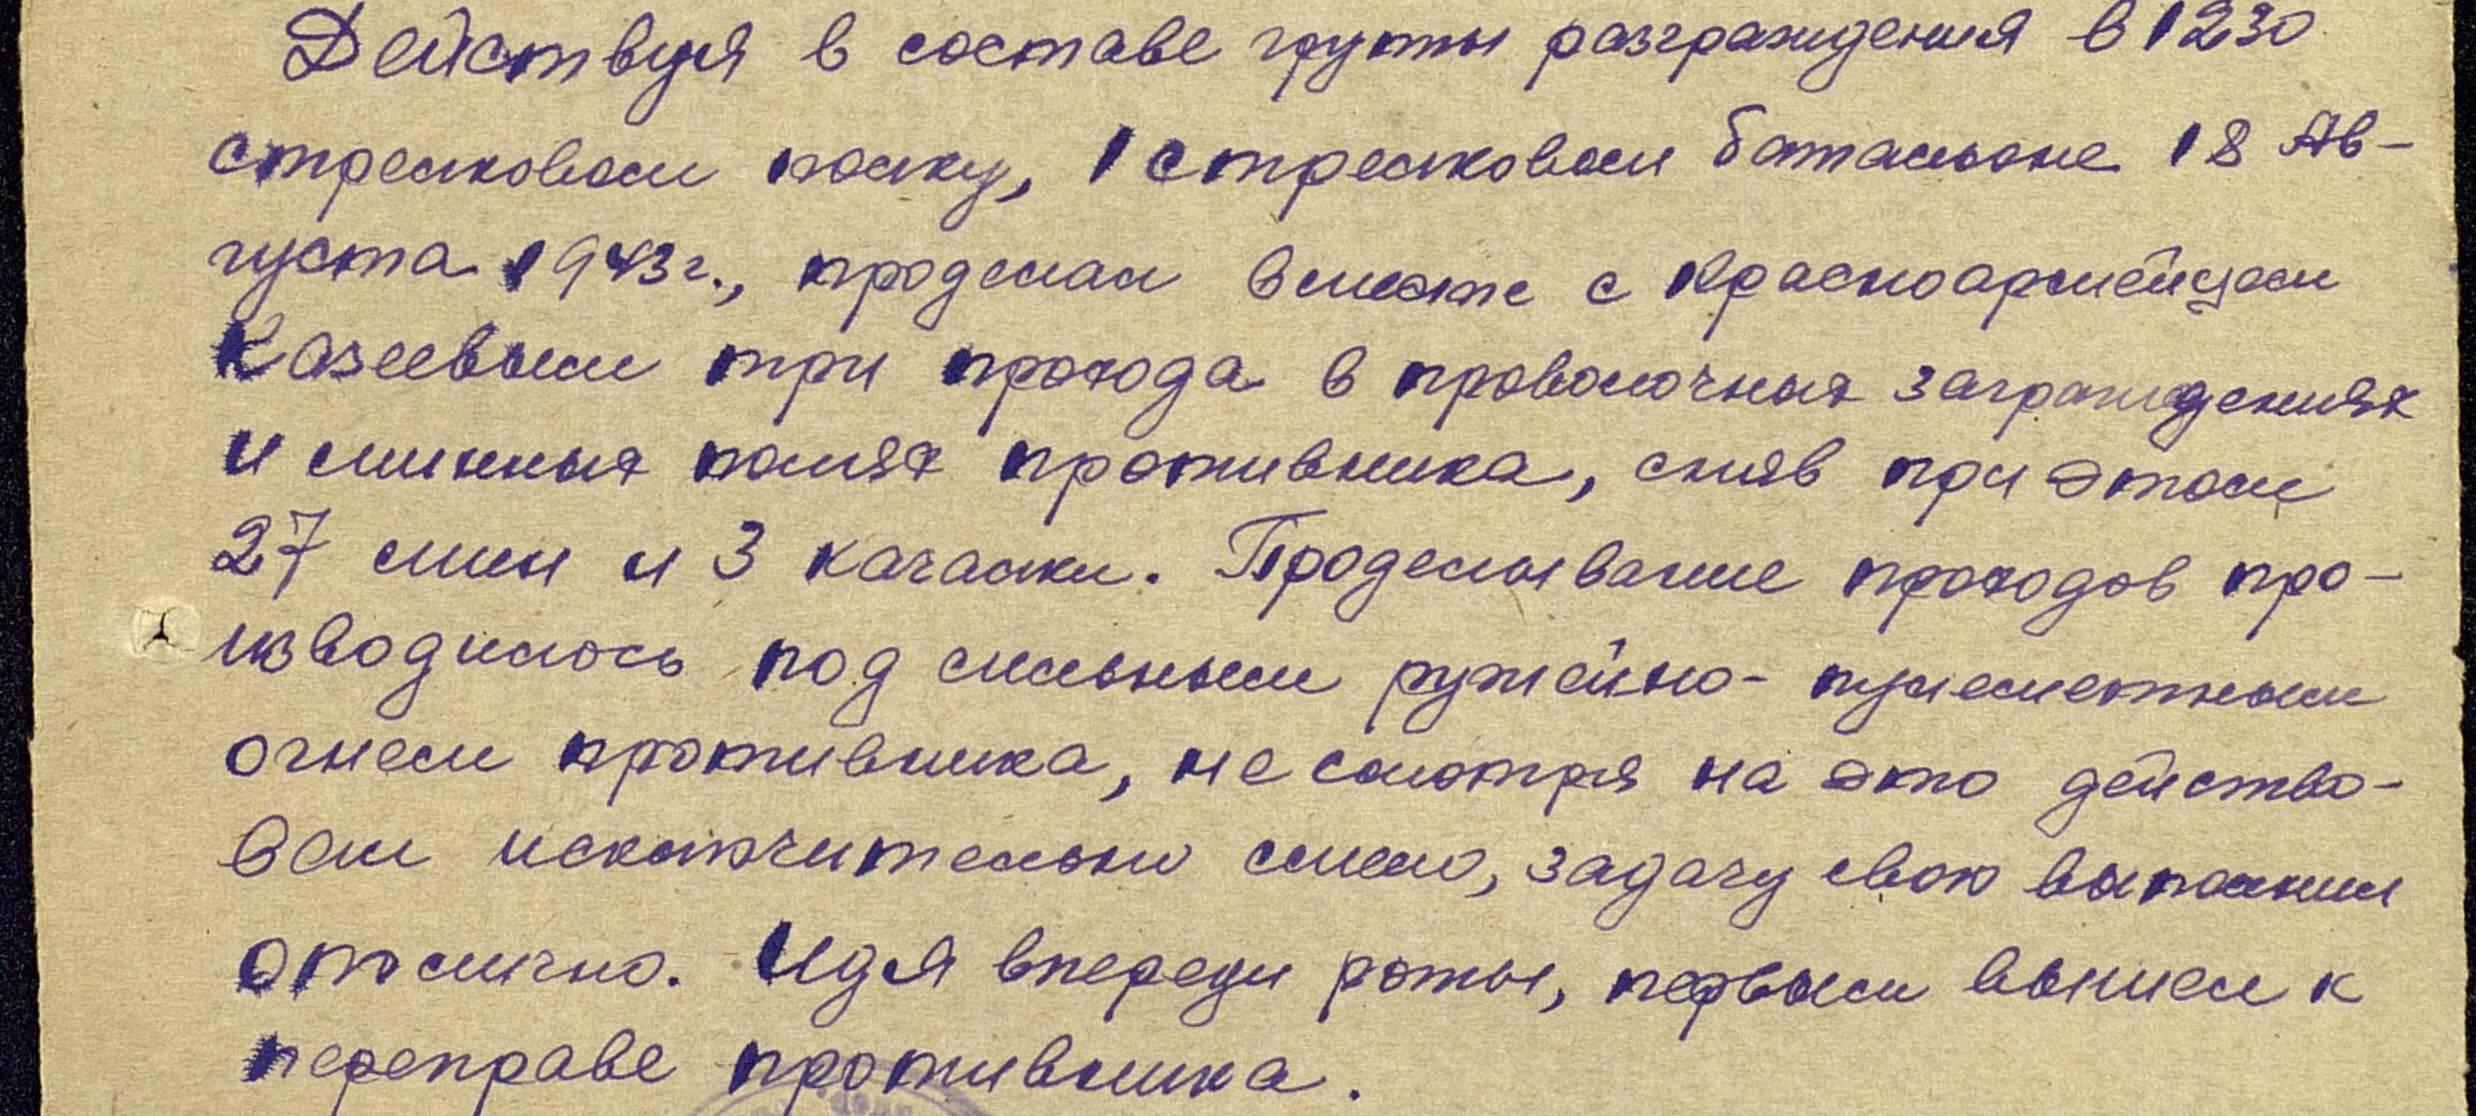 Действуя в составе группы разграждения в 1230
стрелковом полку, 1 стрелковом батальоне 18 Ав-
густа 1943 г., проделал вместе с красноармейцем
Казеевым три прохода в проволочных заграждениях
и минных полях противника, сняв при этом
27 мин и 3 качалки. Проделывание проходов про-
изводилось под сильным ружейно-пулеметным
огнем противника, не смотря на это действо-
вал исключительно смело, задачу свою выполнил
отлично. Идя впереди роты, первым вышел к
переправе противника.